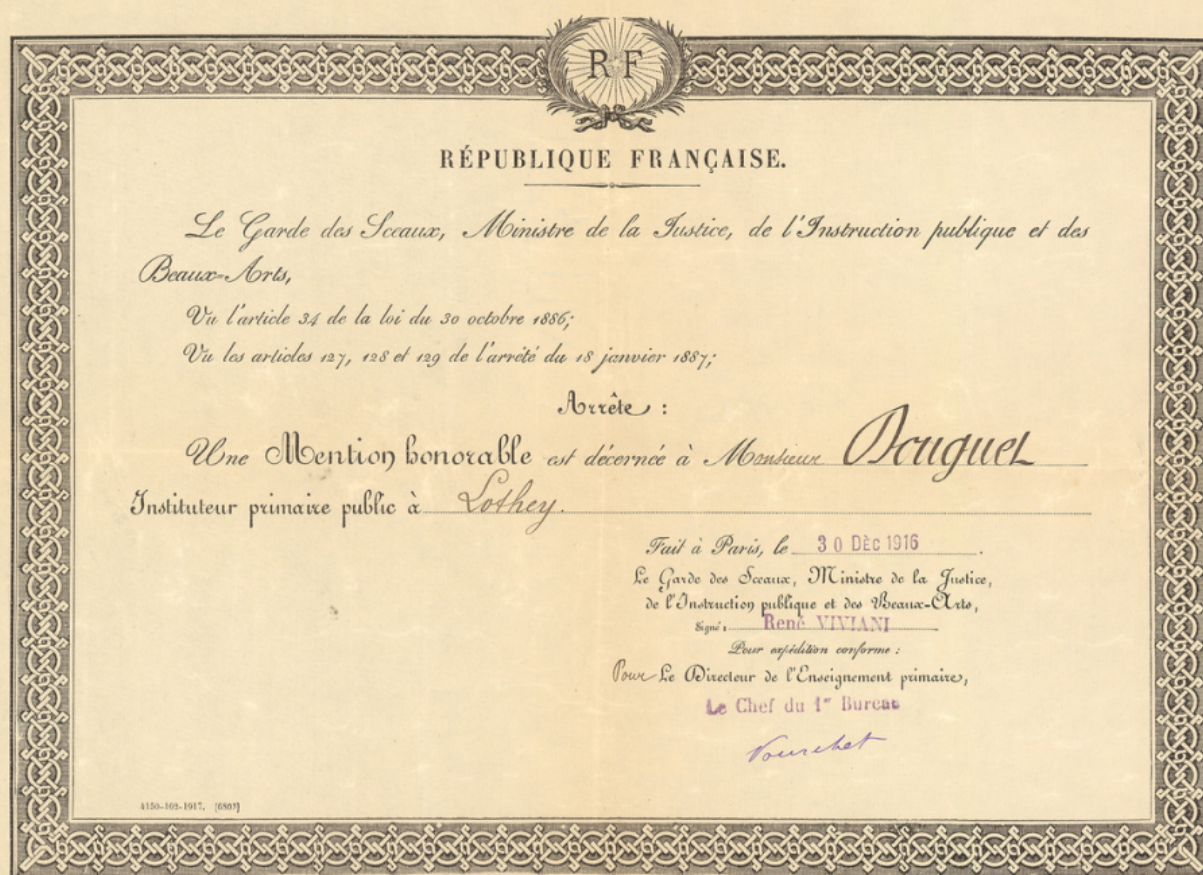 R F
RÉPUBLIQUE FRANÇAISE.
Le Garde des Sceaux, Ministre de la Justice, de l'Instruction publique et des
Beaux-Arts,
Vu l'article 34 de la loi du 30 octobre 1886;
Vu les articles 127, 128 et 129 de l'arrêté du 18 janvier 1887;
Arrête :
Une Mention honorable est décernée à Monsieur Bouguet
Instituteur primaire public à Lothey.
Fait à Paris, le 30 DÈC 1916.
Le Garde des Sceaux, Ministre de la Justice,
de l'Instruction publique et des Beaux-Arts,
Signé : René VIVIANI
Pour expédition conforme :
Pour Le Directeur de l'Enseignement primaire,
Le Chef du 1er Bureau
4150-102-1917.